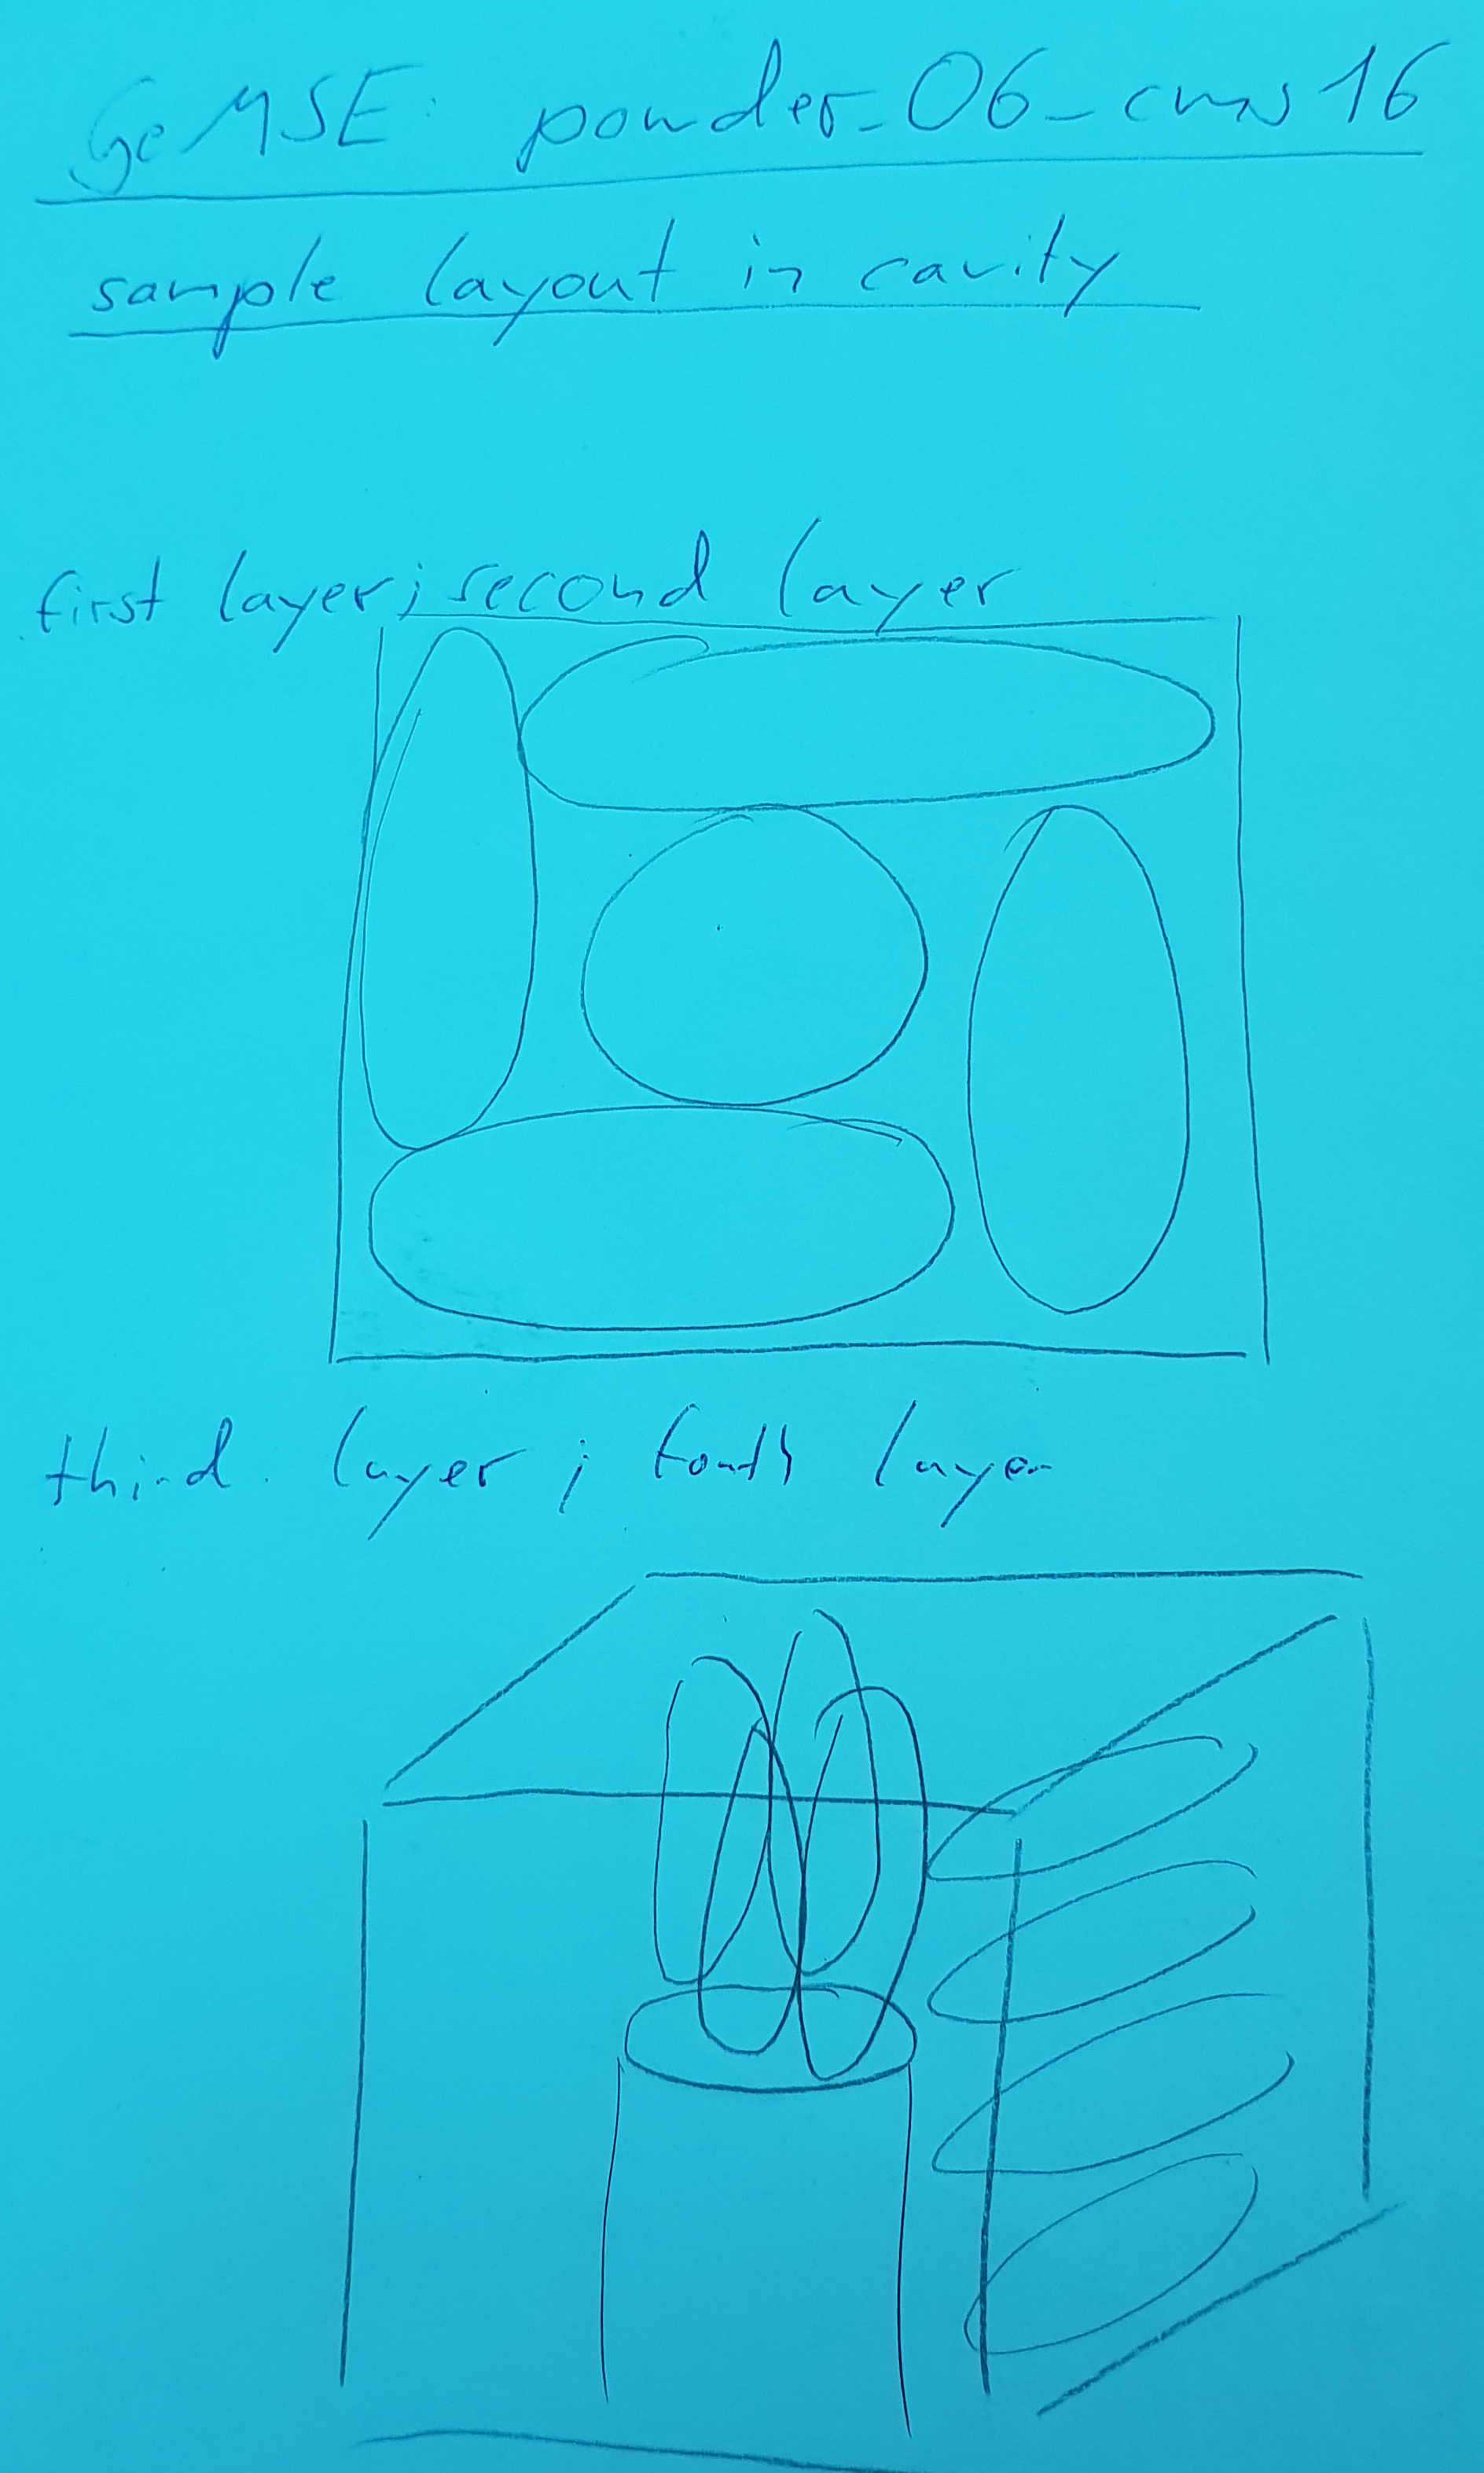 GeMSE: powder_06_cmw16
sample layout in cavity
first layer; second layer
third layer; fourth layer